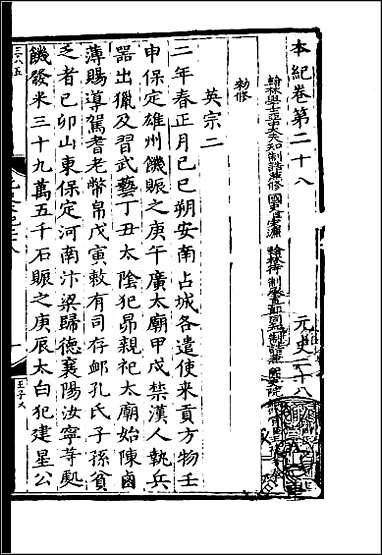 本紀卷第二十八 元史二十八
翰林學士亞中大夫知制誥兼修國史臣宋濂 翰林待制承直郎同知制誥兼國史院編修官臣王禕
勑修
英宗二
二年春正月己巳朔安南占城各遣使來貢方物壬
申保定雄州饑賑之庚午廣太廟甲戌禁漢人執兵
器出獵及習武藝丁丑太陰犯昴親祀太廟始陳鹵
薄賜導駕耆老幣帛戊寅敕有司存邮孔氏子孫貧
乏者己卯山東保定河南汴梁歸德襄陽汝寧等處
饑發米三十九萬五千石賑之庚辰太白犯建星公